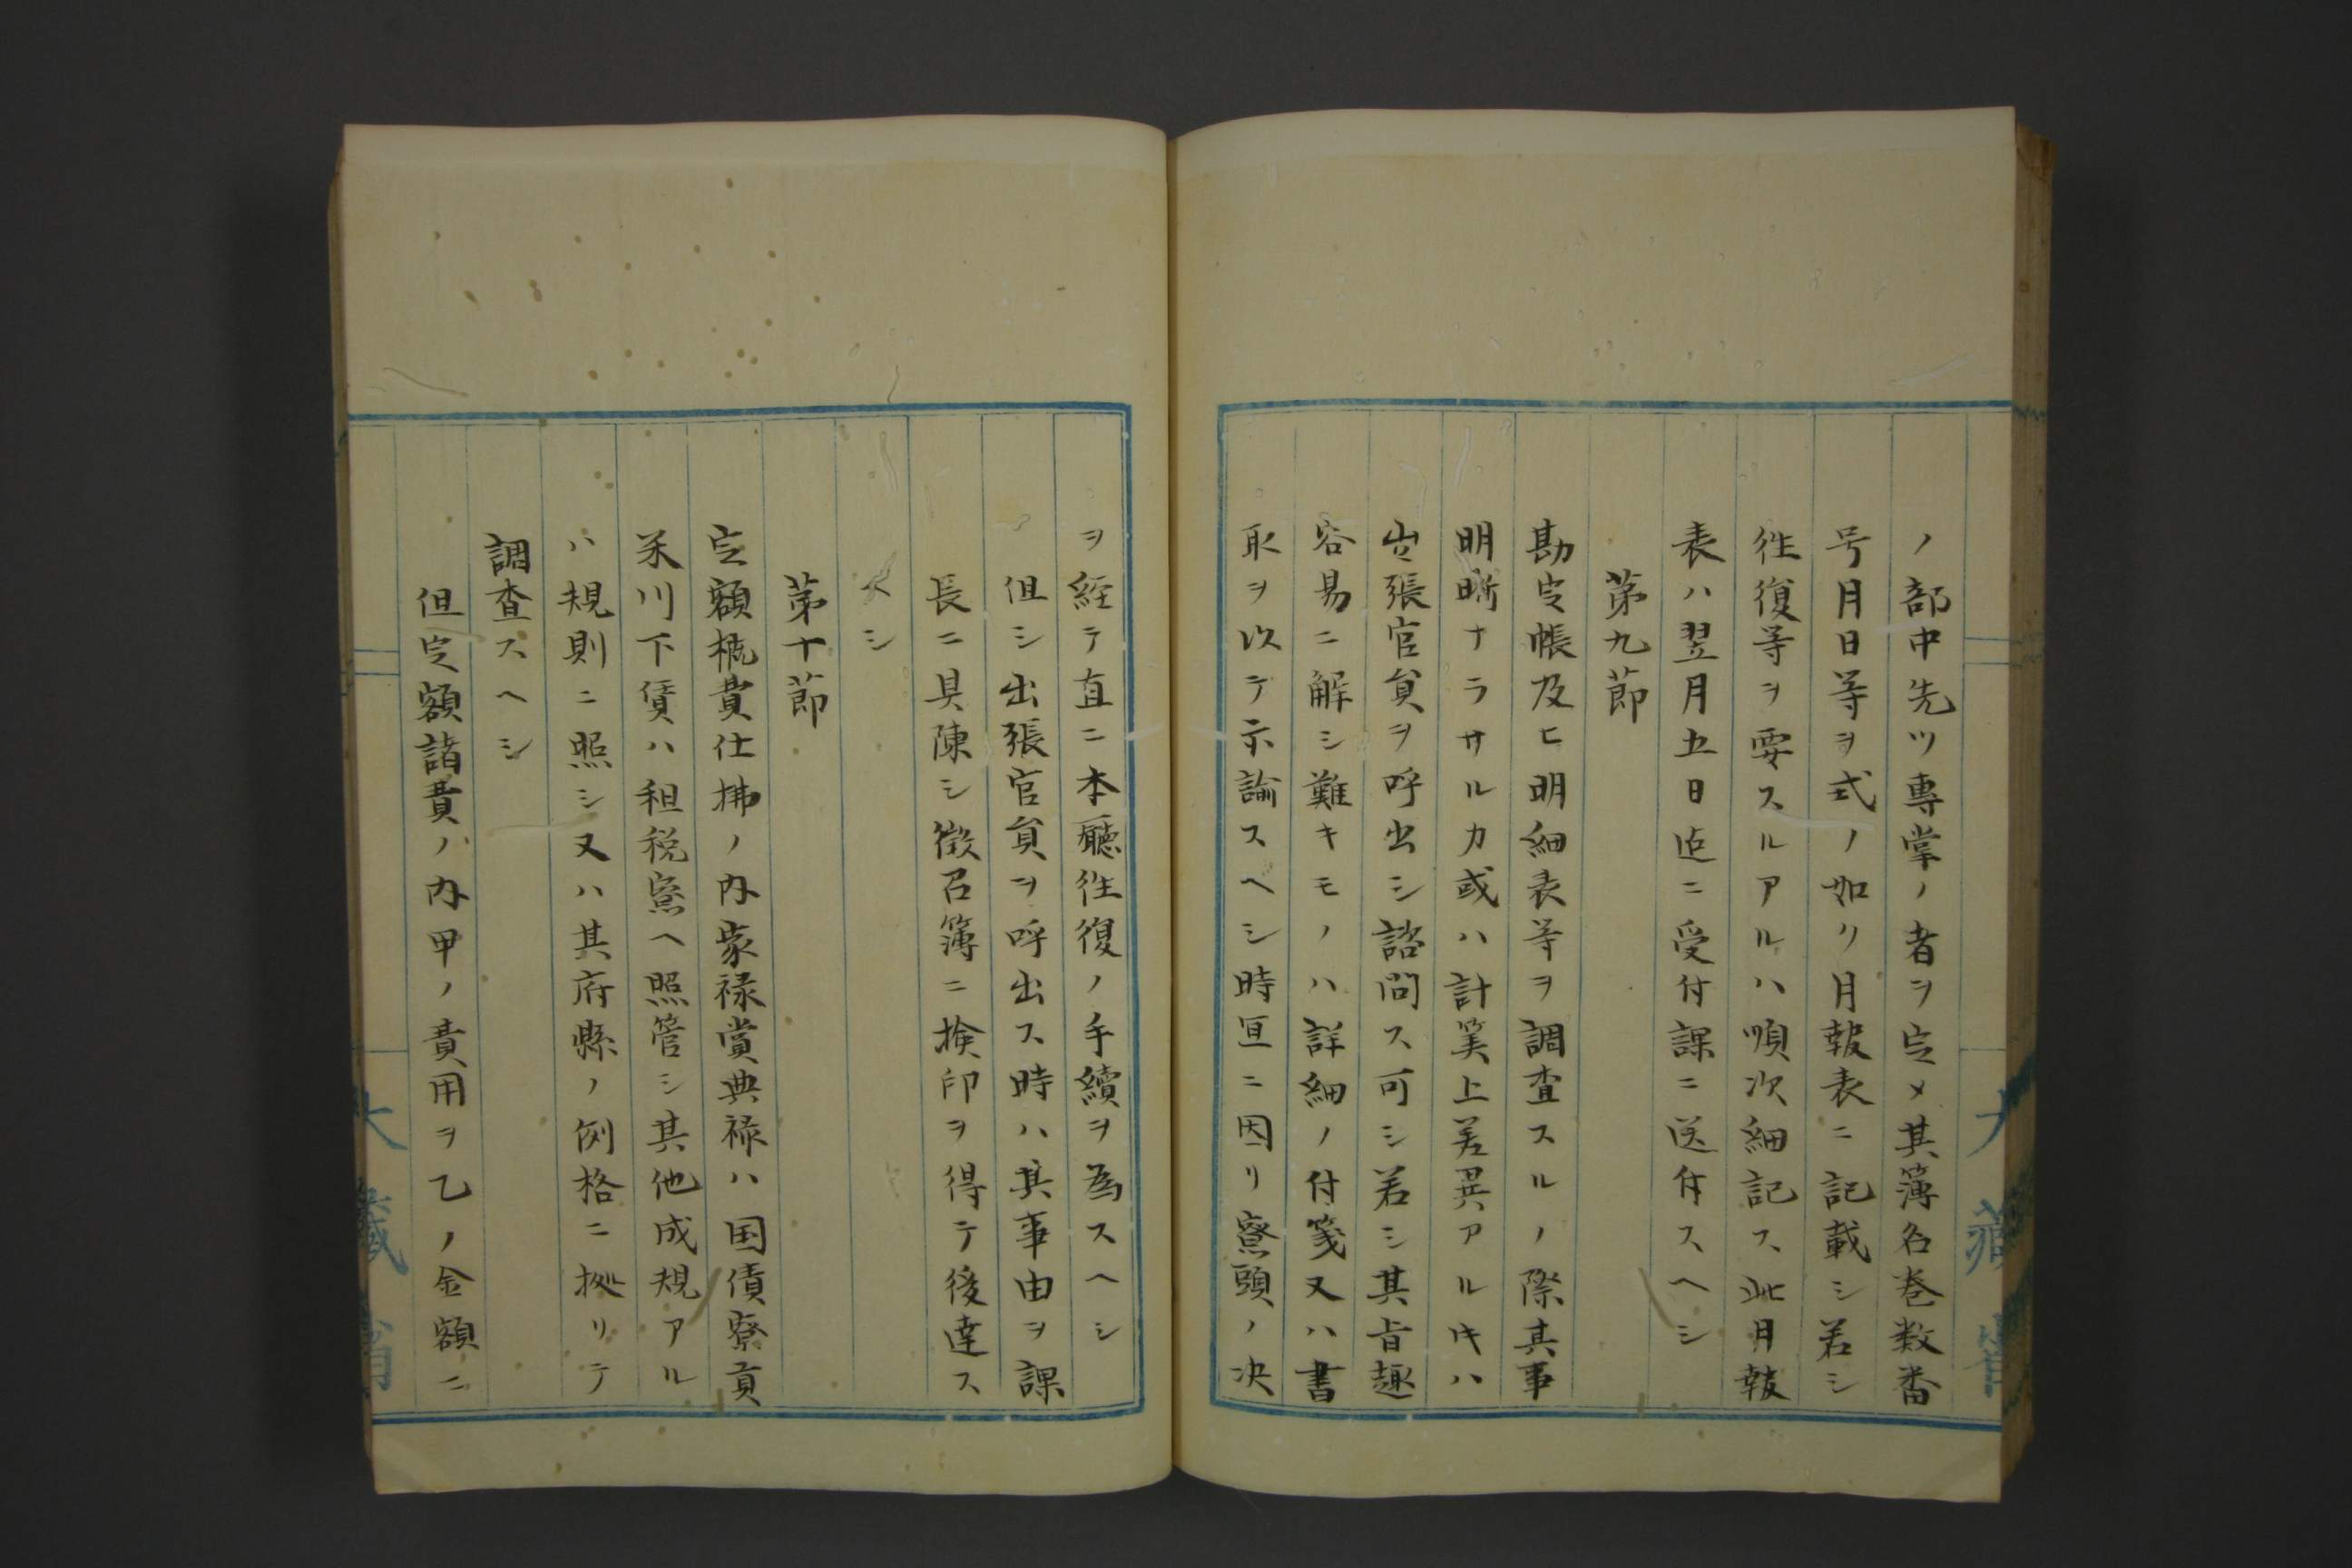 ノ部中先ツ專掌ノ者ヲ定メ其簿名巻数番
号月日等ヲ式ノ如ク月報表ニ記載シ若シ
往復等ヲ要スルアルハ順次細記ス此月報
表ハ翌月五日迄ニ受付課ニ送付スヘシ
第九節
勘定帳及ヒ明細表等ヲ調査スルノ際其事
明晰ナラサルカ或ハ計筭上差異アル𬼀ハ
出張官員ヲ呼出シ諮問ス可シ若シ其旨趣
容易ニ解シ難キモノハ詳細ノ付箋又ハ書
取ヲ以テ示諭スヘシ時冝ニ因リ寮頭ノ决
ヲ経テ直ニ本廳往復ノ手續ヲ為スヘシ
但シ出張官員ヲ呼出ス時ハ其事由ヲ課
長ニ具陳シ徴召簿ニ検印ヲ得テ後達ス
ヘシ
第十節
定額概費仕拂ノ内家禄賞典禄ハ国債寮貢
米川下賃ハ租税寮ヘ照管シ其他成規アル
ハ規則ニ照シ又ハ其府縣ノ例格ニ拠リテ
調査スヘシ
但定額諸費ノ内甲ノ費用ヲ乙ノ金額ニ
大藏省
大藏省